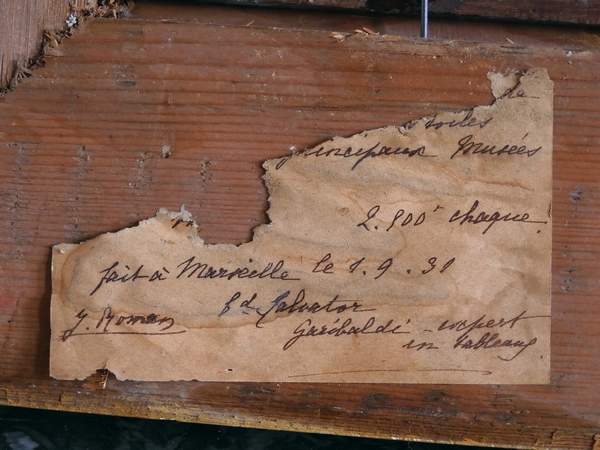 de
toiles
principaux Musées
2.500f chaque.
fait à Marseille le 1.9.31
Bd Salvator
J. Roman
Garibaldi - expert
en tableaux.